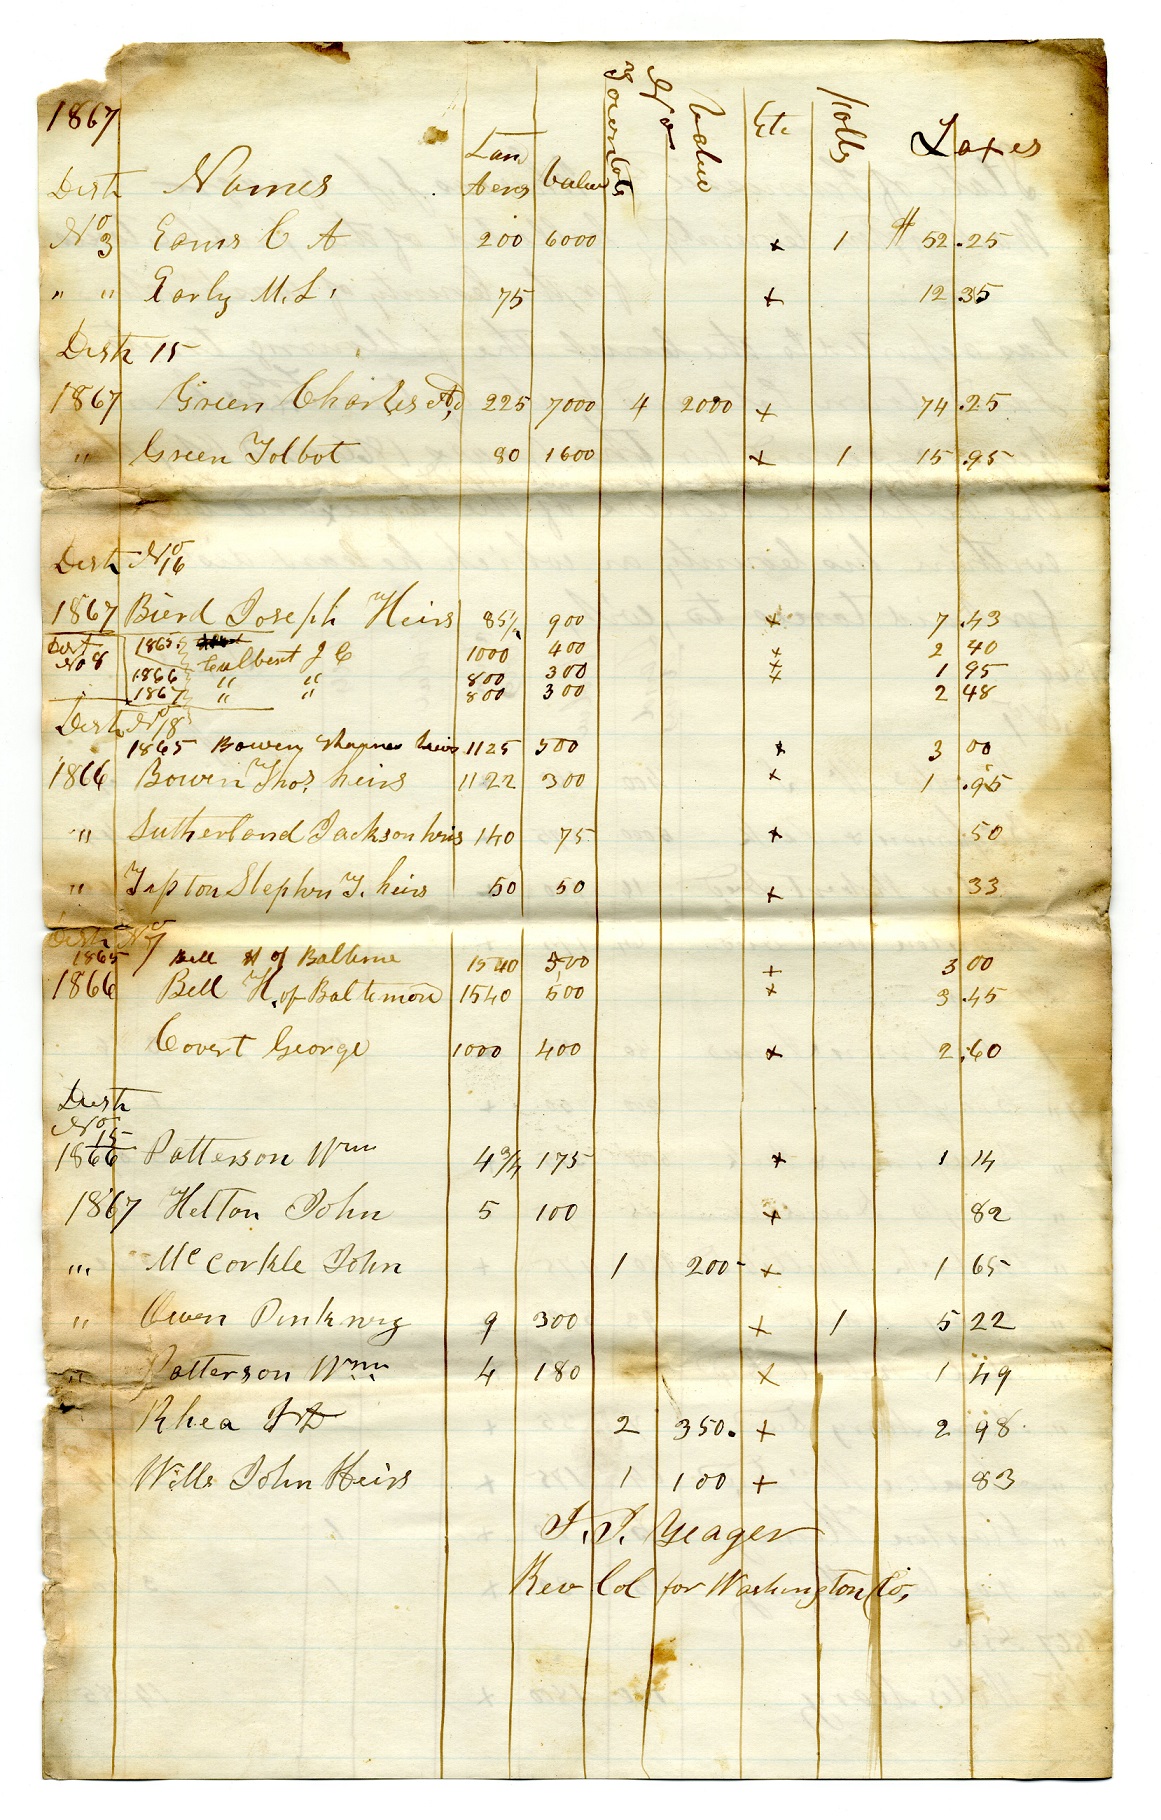 1867
Distr Names Lan Acres Value Town lots No Value Etc Polls Taxes
No 3 Eams C A 200 6000 x 1 $ 52.25
" " Early M. L. 75 x 12 35
Distr 15
1867 Green Charles 225 7000 4 2000 x 74.25
" Green Tolbot 80 1600 x 1 15.95
Distr No 16
1867 Bierd Joseph Heirs 85½ 900 x 7.43
Dist No 8 1865 Culbert J C 1000 400 x 2 40
1866 " " 800 300 x 1 95
1867 " " 800 300 x 2 48
Distr No 18
1865 Bowen heirs 1125 500 x 3 00
1866 Bowen Thos. heirs 1122 300 x 1.95
" Sutherland Jackson heirs 140 75 x .50
" Tipton Stephen T. heirs 50 50 x 33
Distr No 7
1865 Bell H of Baltimre 1540 500 x 3 00
1866 Bell H. of Baltimore 1540 500 x 3.45
Covert George 1000 400 x 2.60
Distr
No 15
1866 Patterson Wm 4 3/4 175 x 1 14
1867 Helton John 5 100 x 82
"' McCorkle John 1 200- x 1 65
" Owen Pinkney 9 300 x 1 5 22
" Patterson Wm 4 180 x 1 49
Rhea 2 350. x 2 98
Wills John Heirs 1 100 x 83
J. J. Yeager
Rev Col for Washington Co,